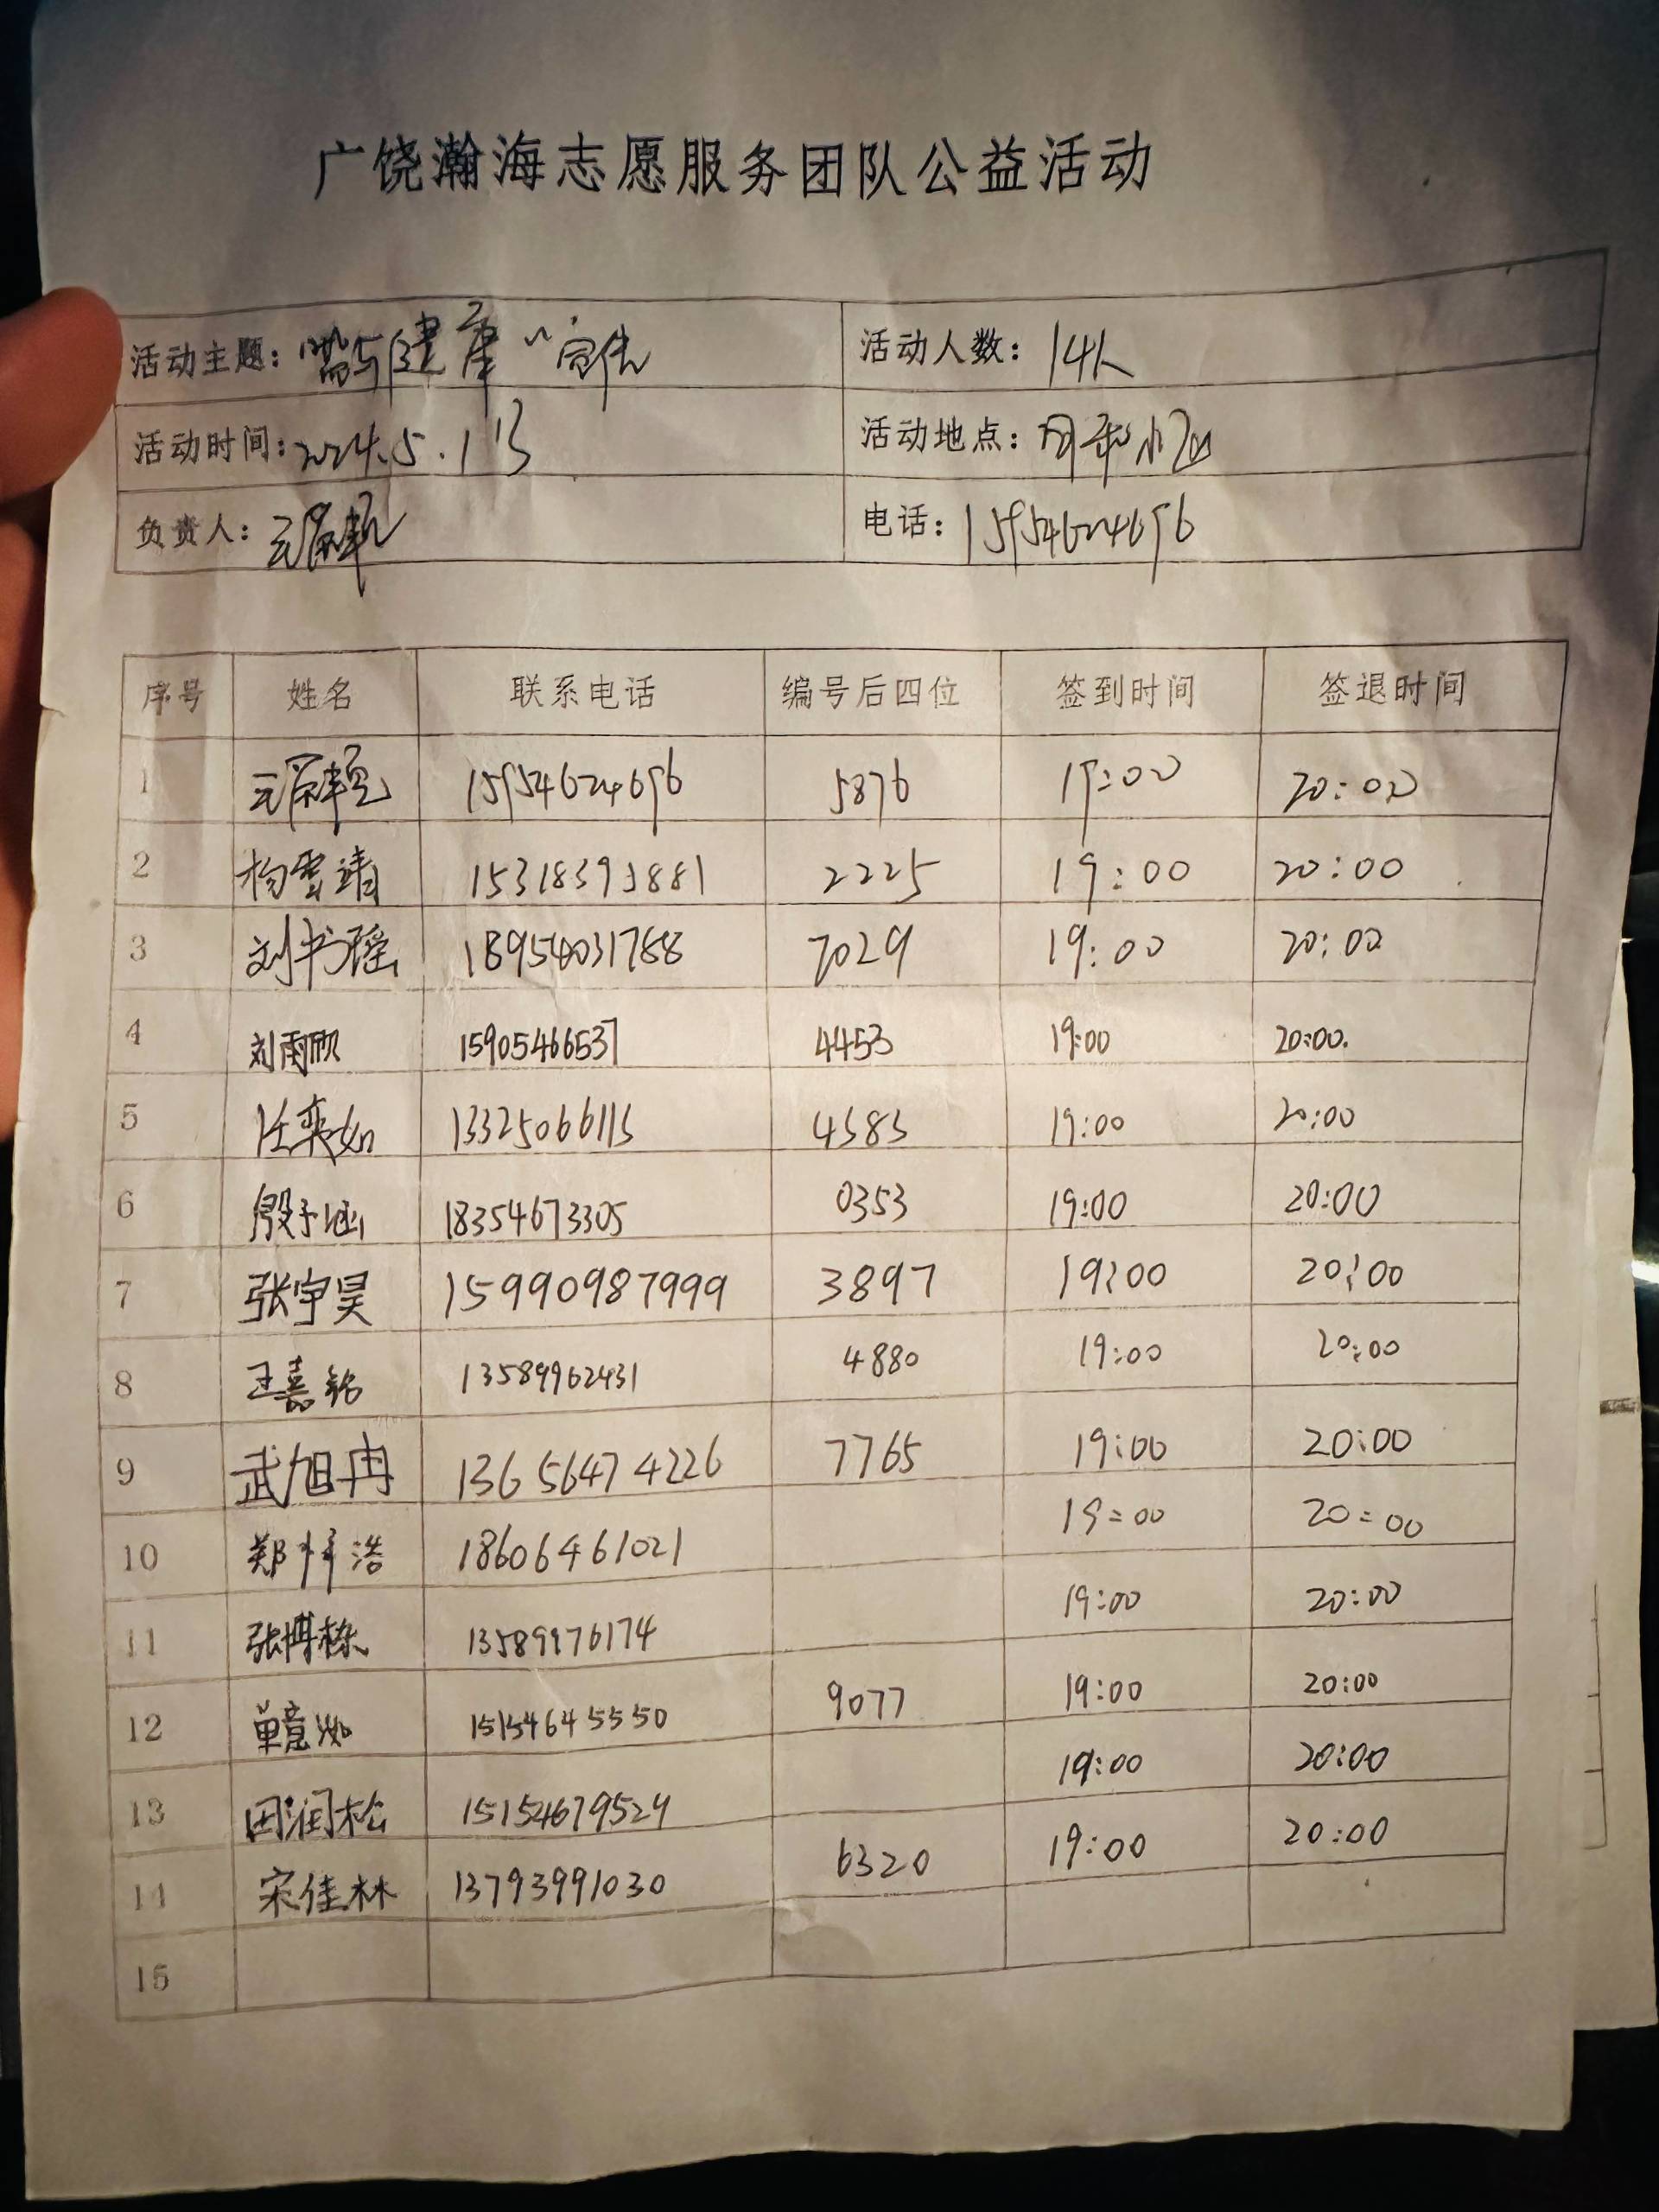 广饶瀚海志愿服务团队公益活动
活动主题：健康"宣传 活动人数：14人
活动时间：2024.5.1 活动地点：
负责人： 电话：15954624696
序号 姓名 联系电话 编号后四位 签到时间 签退时间
1 15954624696 5876 19:00 20:00
2 杨雪靖 15318391881 2225 19:00 20:00
3 刘书瑶 18954031788 7029 19:00 20:00
4 刘雨欣 15905466537 4453 19:00 20:00.
5 任奕如 13325066115 4585 19:00 20:00
6 殷予涵 18354673305 0353 19:00 20:00
7 张宇昊 15990987999 3897 19:00 20:00
8 王嘉铭 13589962431 4880 19:00 20:00
9 武旭冉 13656474226 7765 19:00 20:00
10 郑梓浩 18606461021 19:00 20:00
11 张博栋 13589976174 19:00 20:00
12 单意如 15154645550 9077 19:00 20:00
13 田润松 15154679524 19:00 20:00
14 宋佳林 13793991030 6320 19:00 20:00
15